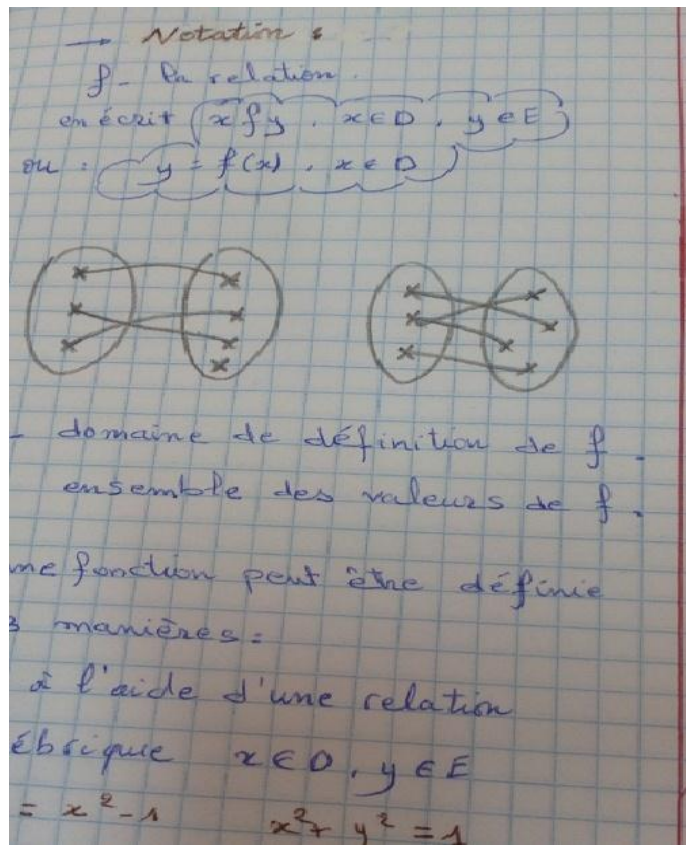 → Notation :
f - la relation.
on écrit (x f y , x ∈ D , y ∈ E)
ou : ( y = f(x) , x ∈ D )
- domaine de définition de f .
ensemble des valeurs de f .
me fonction peut être définie
3 manières :
à l'aide d'une relation
ébrique x ∈ D , y ∈ E
= x² - 1 x² + y² = 1